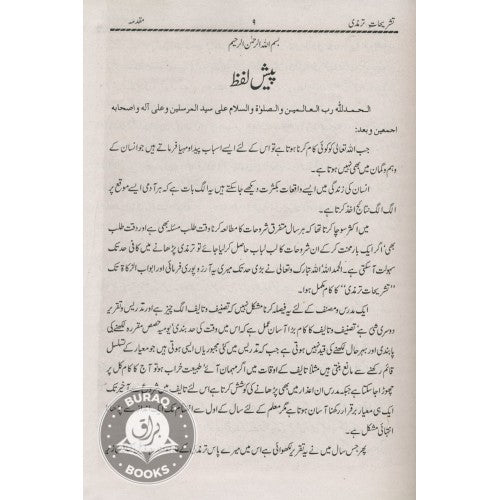 تشریحات ترمذی ۹ مقدمہ
بسم اللہ الرحمٰن الرحیم
پیش لفظ
الحمدللہ رب العالمین والصلوٰة والسلام علی سید المرسلین وعلی آلہ واصحابہ
اجمعین وبعد:
جب اللہ تعالیٰ کو کوئی کام کرنا ہوتا ہے تو اس کے لئے ایسے اسباب پیدا و مہیا فرماتے ہیں جو انسان کے
وہم و گمان میں بھی نہیں ہوتا ہے۔
انسان کی زندگی میں ایسے واقعات بکثرت دیکھے جا سکتے ہیں یہ الگ بات ہے کہ ہر آدمی ایسے موقع پر
الگ الگ نتائج اخذ کرتا ہے۔
میں اکثر سوچا کرتا تھا کہ ہر سال متفرق شروحات کا مطالعہ کرنا وقت طلب مسئلہ بھی ہے اور دقت طلب
بھی، اگر ایک بار محنت کر کے ان شروحات کا لب لباب حاصل کر لیا جائے تو ترمذی پڑھانے میں کافی حد تک
سہولت آ سکتی ہے۔ الحمد للہ! اللہ تبارک وتعالیٰ نے بڑی حد تک میری یہ آرزو پوری فرمائی اور ابواب الزکاة تک
"تشریحات ترمذی" کا کام مکمل ہوا۔
ایک مدرس و مصنف کے لئے یہ فیصلہ کرنا مشکل نہیں کہ تصنیف و تالیف الگ چیز ہے اور تدریس و تقریر
دوسری شئی ہے تصنیف و تالیف کا کام بڑا آسان عمل ہے کہ اس میں وقت کی حد بندی، یومیہ حصص مقررہ لکھنے کی
پابندی اور بہر حال لکھنے کی قید نہیں ہوتی ہے جب کہ تدریس میں کئی مجبوریاں ایسی ہوتی ہیں جو معیار کے تسلسل
قائم رکھنے سے مانع بنتی ہیں مثلاً تالیف کے اوقات میں اگر مہمان آئے یا طبیعت خراب ہو تو آج کا کام کل پر
چھوڑا جا سکتا ہے جبکہ مدرس ان اعذار میں بھی پڑھانے کی کوشش کرتا ہے اس لئے تالیف میں شروع سے آخر تک
ایک ہی معیار برقرار رکھنا آسان ہوتا ہے مگر معلم کے لئے سال کے اول سے اختتام تک
انتہائی مشکل ہے۔
پھر جس سال میں نے یہ تقریر لکھوائی ہے اس میں میرے پاس ترمذی
BURAQ
براق
BOOKS